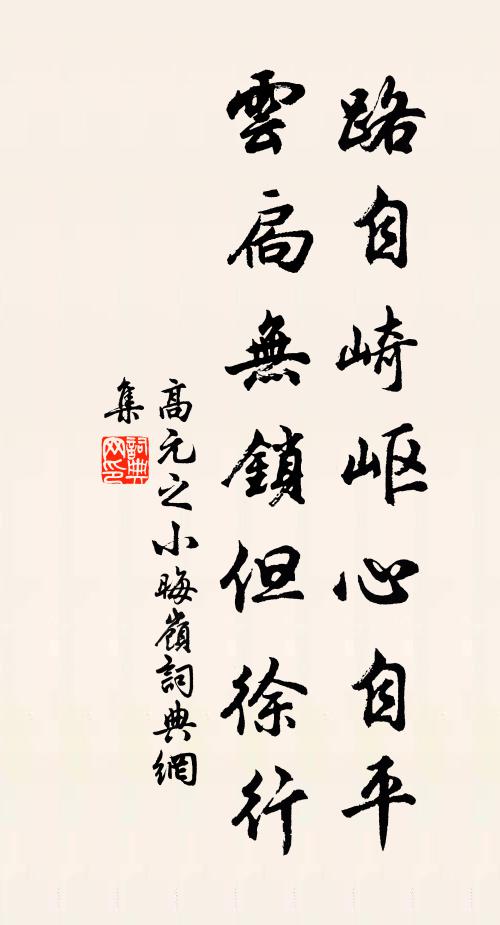 路自崎岖心自平
雲扃無鎖但徐行
高元之小晦嶺詞典網
集
詞典
网